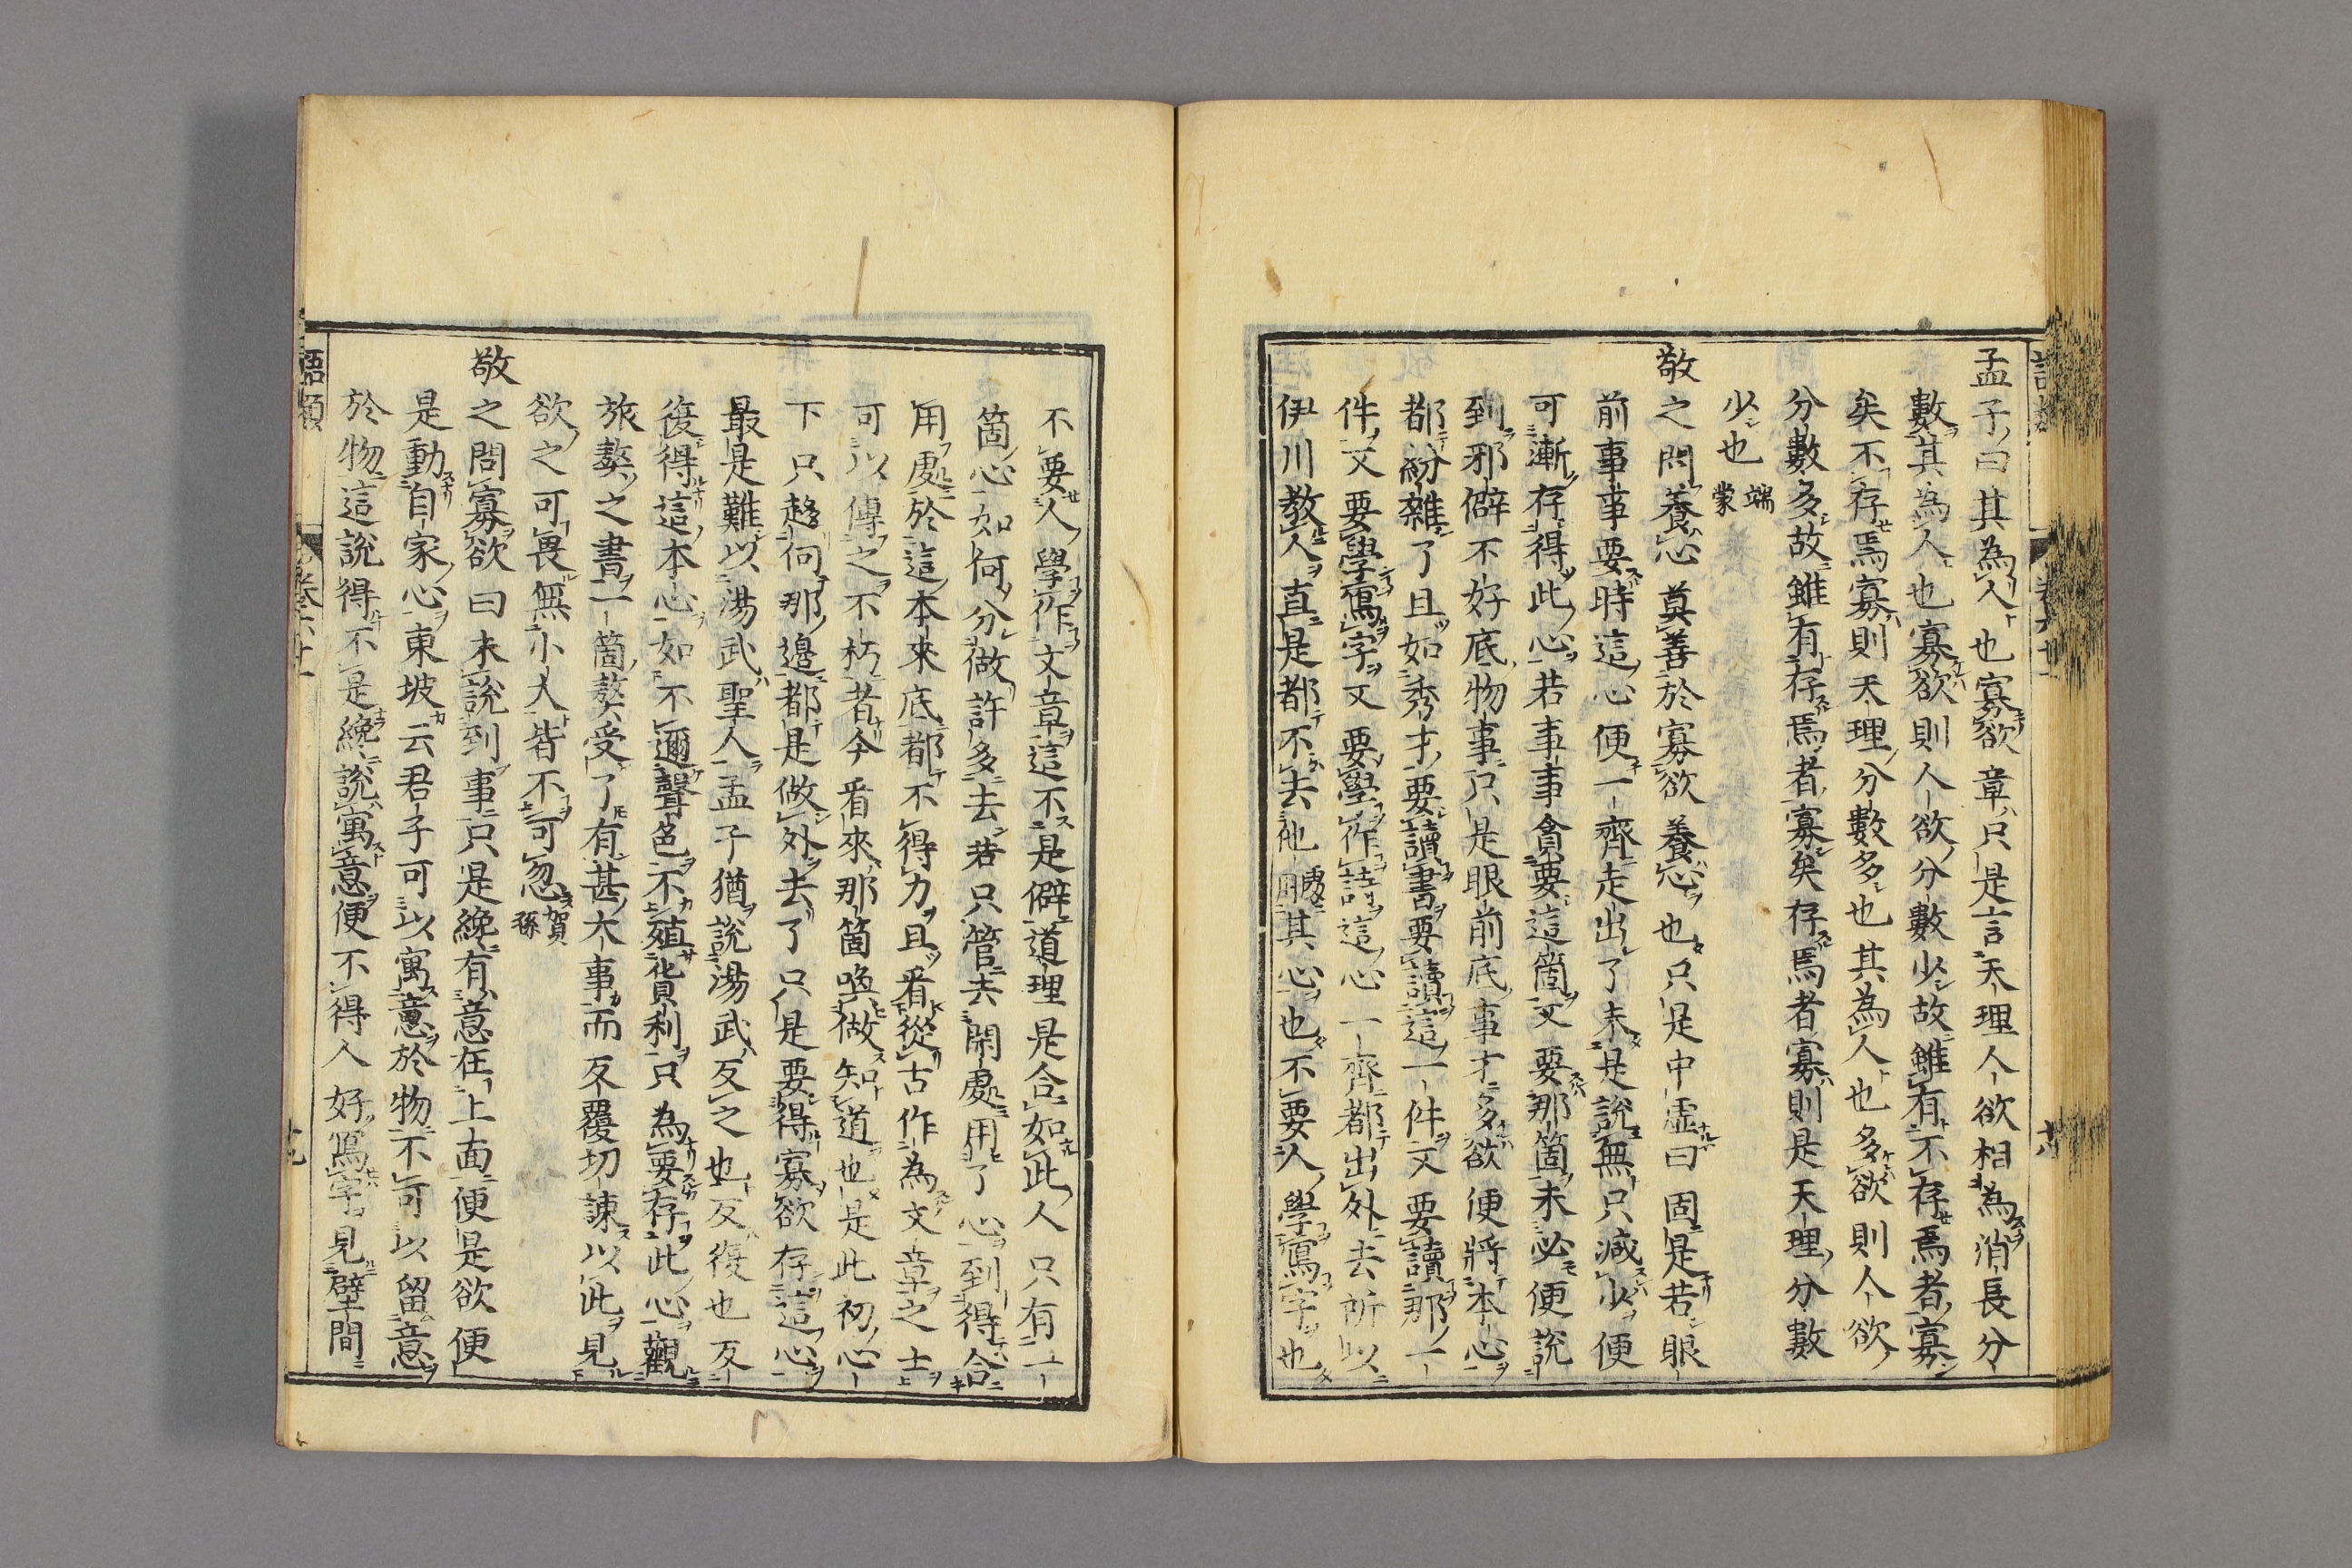 孟子曰其為人也寡欲章只是言天理人欲相為消長分
數其為人也寡欲則人欲分數少故雖有不存焉者寡
矣不存焉寡則天理分數多也其為人也多欲則人欲
分數多故雖有存焉者寡矣存焉者寡則是天理分數
少也端蒙
敬之問養心莫善於寡欲養心也只是中虛曰固是若眼
前事事要時這心便一齊走出了未是說無只減少便
可漸存得此心若事事貪要這箇又要那箇未必便說
到邪僻不好底物事只是眼前底事才多欲便將本心
都紛雜了且如秀才要讀書要讀這一件又要讀那一
件又要學寫字又要學作詩這心一齊都出外去所以
伊川教人直是都不去他處用其心也不要人學寫字也
不要人學作文章這不是僻道理是合如此人只有一
箇心如何分做許多去若只管去閑處用了心到得合
用處於這本來底都不得力且看從古作為文章之士
可以傳之不朽者今看來那箇喚做知道也是此初心
下只趨向那邊都是做外去了只是要得寡欲存這心
最是難以湯武聖人孟子猶說湯武反之也反復也反
復得這本心如不邇聲色不殖貨利只為要存此心觀
旅獒之書一箇獒受了有甚大事而反覆切諫以此見
欲之可畏無小大皆不可忽賀孫
敬之問寡欲曰未說到事只是纔有意在上面便是欲便
是動自家心東坡云君子可以寓意於物不可以留意
於物這說得不是纔說寓意便不得人好寫字見壁間
語類
卷六十一
十九